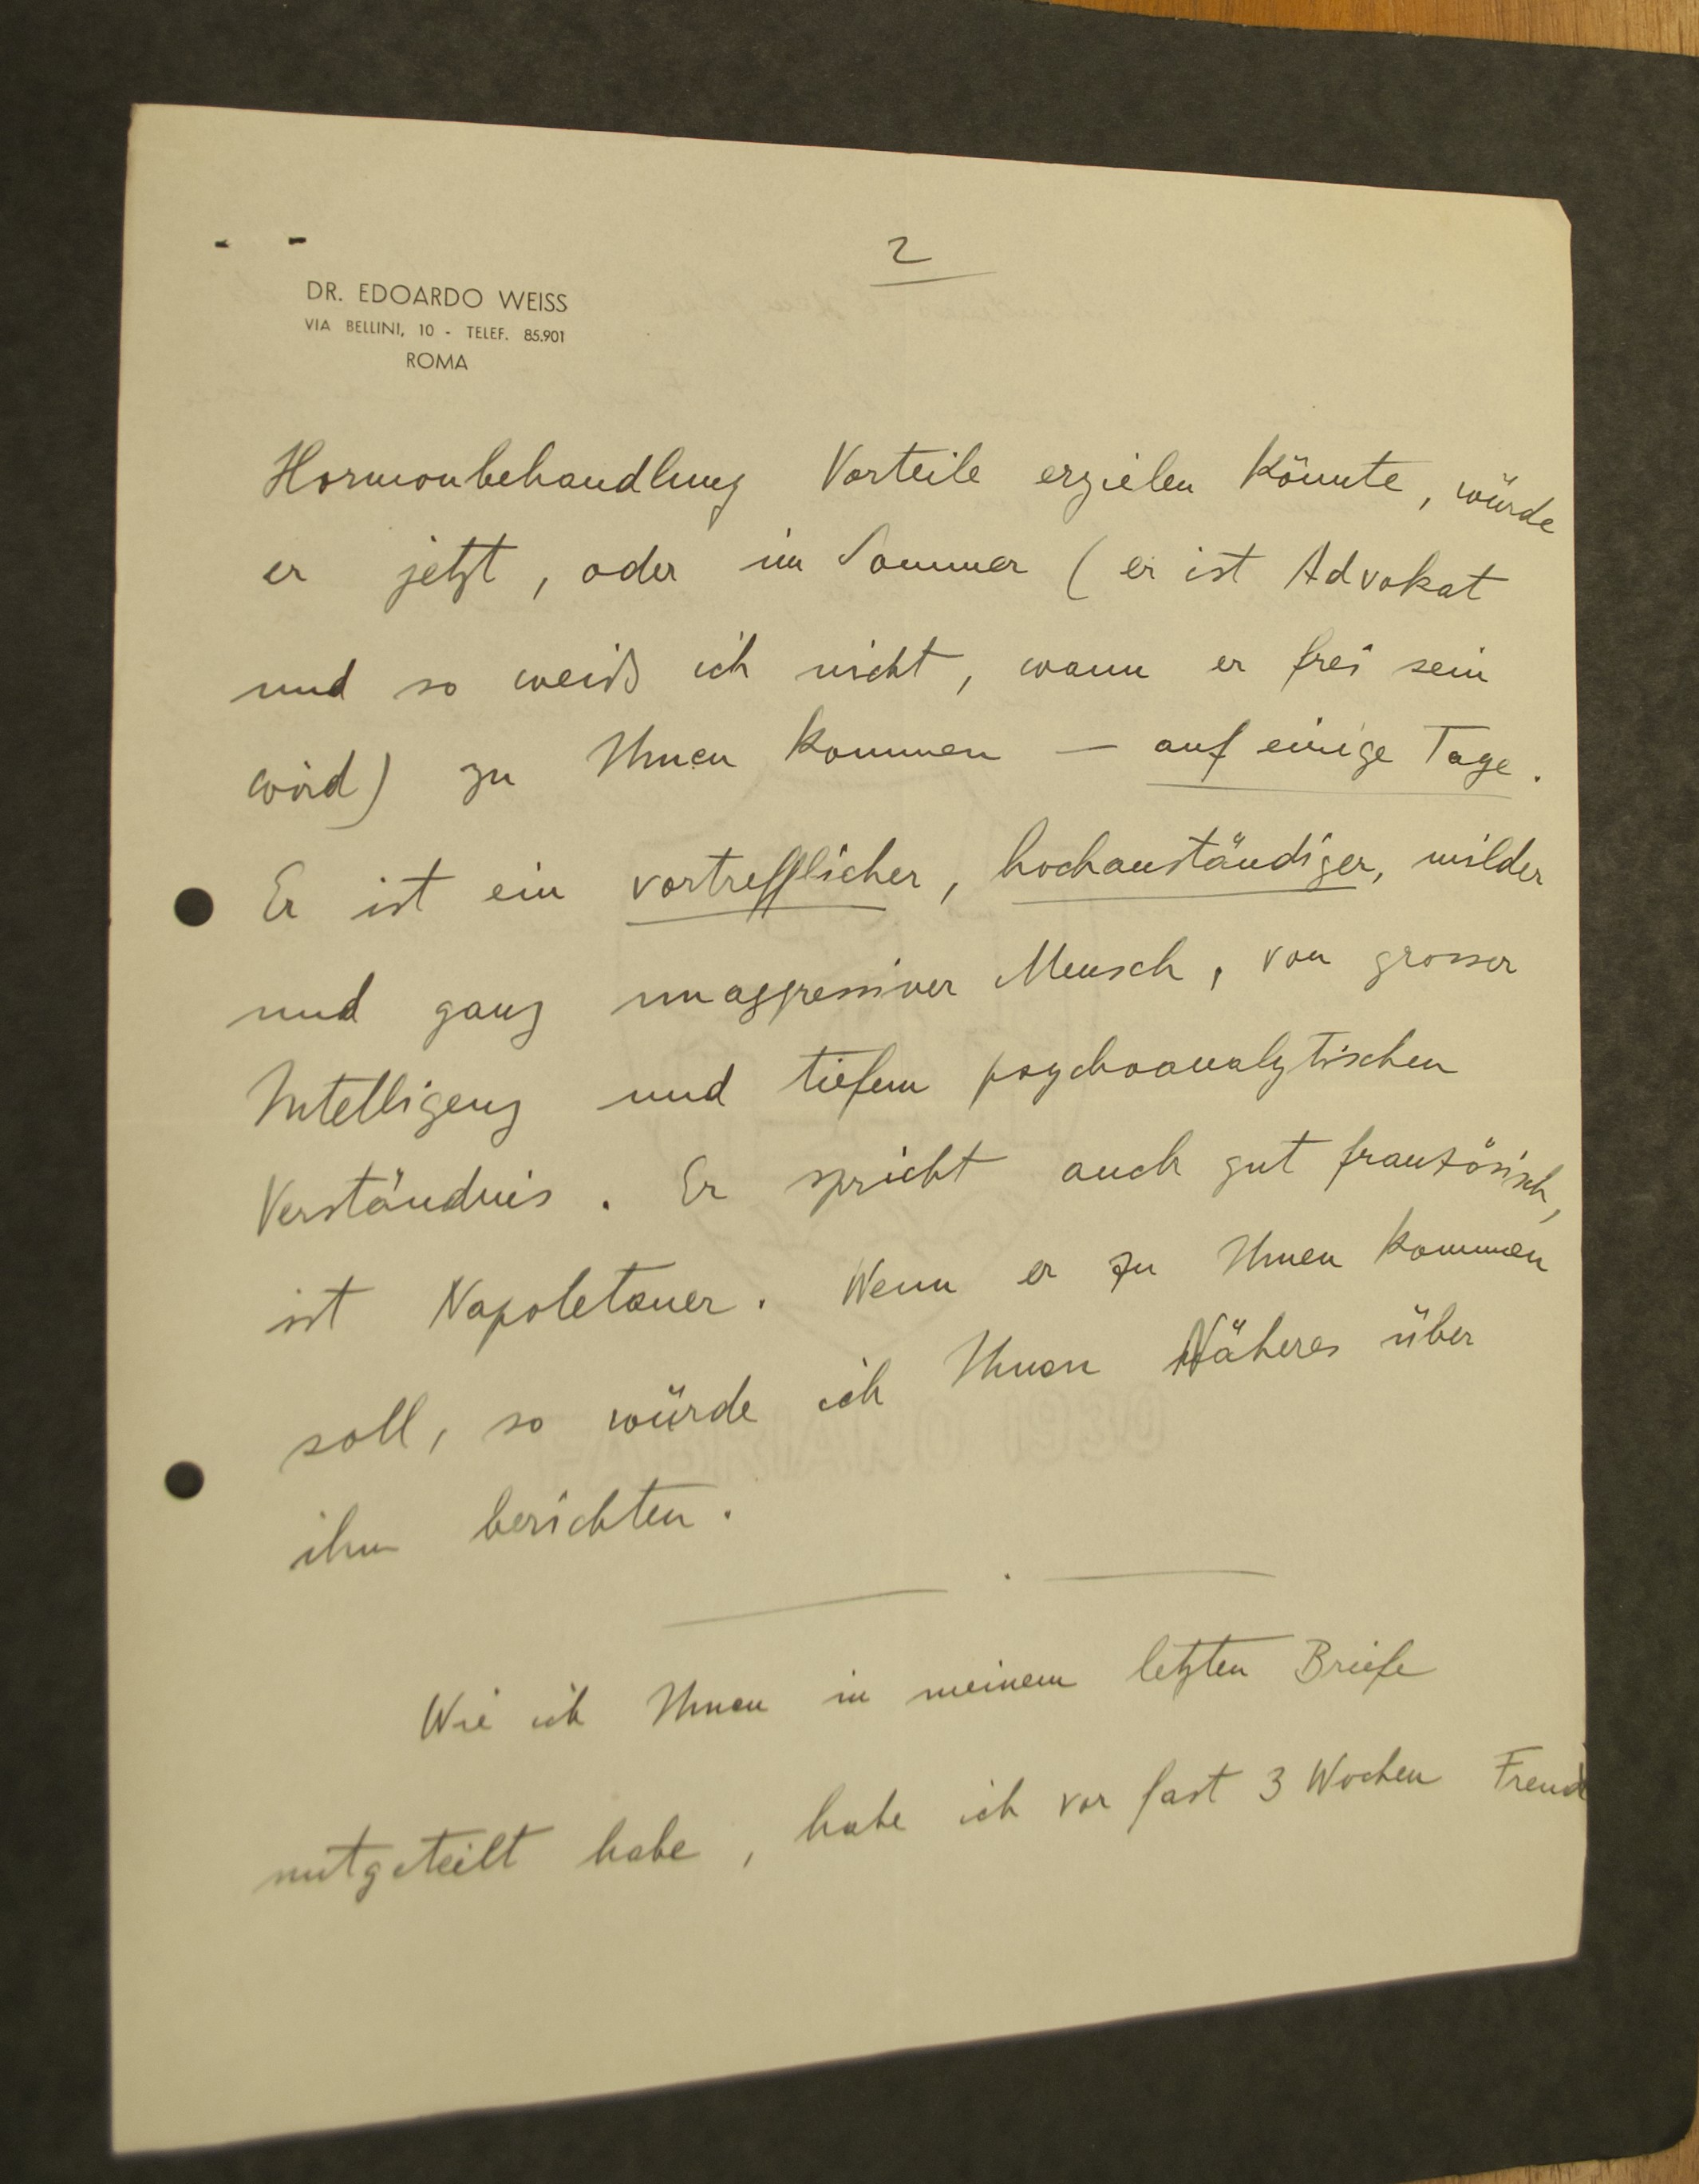 2
DR. EDOARDO WEISS
VIA BELLINI, 10 - TELEF. 85.901
ROMA
Hormonbehandlung Vorteile erzielen könnte, würde
er jetzt, oder im Sommer (er ist Advokat
und so weiß ich nicht, wann er frei sein
wird) zu Ihnen kommen — auf einige Tage.
Er ist ein vortrefflicher, hochanständiger, milder
und ganz unaggressiver Mensch, von grosser
Intelligenz und tiefem psychoanalytischen
Verständnis. Er spricht auch gut französisch,
ist Napoletaner. Wenn er zu Ihnen kommen
soll, so würde ich Ihnen Näheres über
ihn berichten.
Wie ich Ihnen in meinem letzten Briefe
mitgeteilt habe, habe ich vor fast 3 Wochen Freud